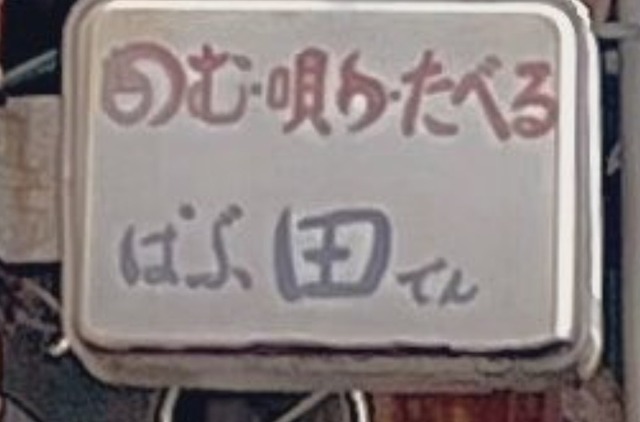 のむ・唄う・たべる
ぱぶ田てん